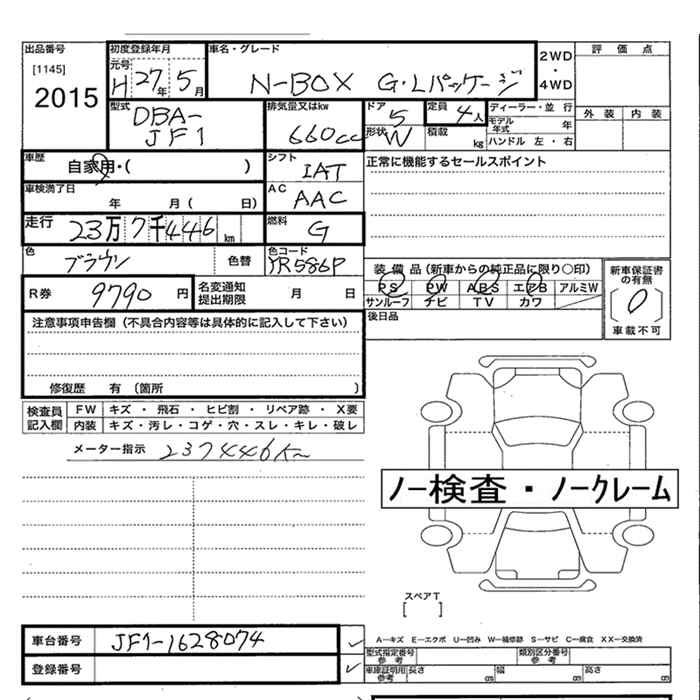 出品番号
[1145]
2015
初度登録年月
元号
H 27年 5月
車名・グレード
N-BOX G・Lパッケージ
2WD
・
4WD
評価点
外装 内装
型式
DBA-
JF1
排気量又はkw
660cc
ドア
5
形状
W
定員
4人
積載
kg
ディーラー・並行
モデル年式 年
ハンドル 左・右
車歴
自家用・( )
シフト
IAT
正常に機能するセールスポイント
車検満了日
年 月( 日)
AC
AAC
走行
23万7千446km
燃料
G
色
ブラウン
色替
色コード
YR586P
装備品(新車からの純正品に限り○印)
PS PW ABS エアB アルミW
サンルーフ ナビ TV カワ
新車保証書の有無
[0]
車載不可
R券
9790円
名変通知
提出期限
月 日
後日品
注意事項申告欄(不具合内容等は具体的に記入して下さい)
修復歴 有 (箇所 )
検査員
記入欄
FW キズ・飛石・ヒビ割・リペア跡・X要
内装 キズ・汚レ・コゲ・穴・スレ・キレ・破レ
メーター指示 237446K
ノー検査・ノークレーム
スペアT
[ ]
車台番号
JF1-1628074
登録番号
A－キズ E－エクボ U－凹み W－補修跡 S－サビ C－腐食 XX－交換済
型式指定番号
参考
類別区分番号
参考
車庫証明用
参考
長さ cm
幅 cm
高さ cm